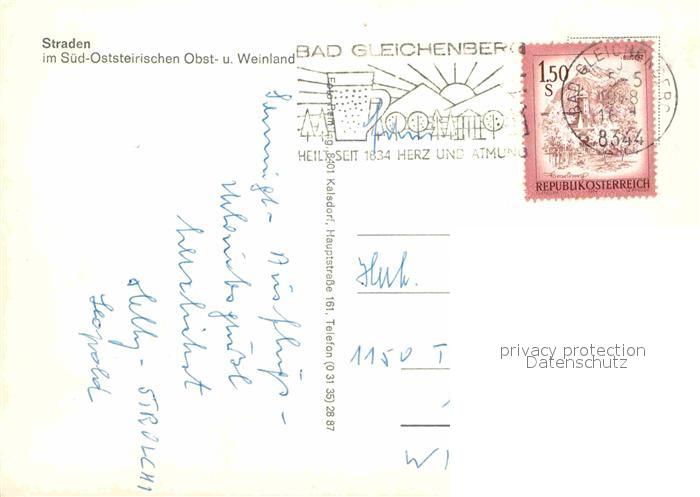 Straden
im Süd-Oststeirischen Obst- u. Weinland
BAD GLEICHENBERG
HEILT SEIT 1834 HERZ UND ATMUNG
1.50
S
REPUBLIK ÖSTERREICH
BAD GLEICHENBERG
8344
Foto Remling, 8401 Kalsdorf, Hauptstraße 161, Telefon (0 31 35) 28 87
Sonnigst- Ausflugs-
Urlaubsgrüße
herzlichst
Helly - STROLCHI
Leopold
1150
privacy protection
Datenschutz